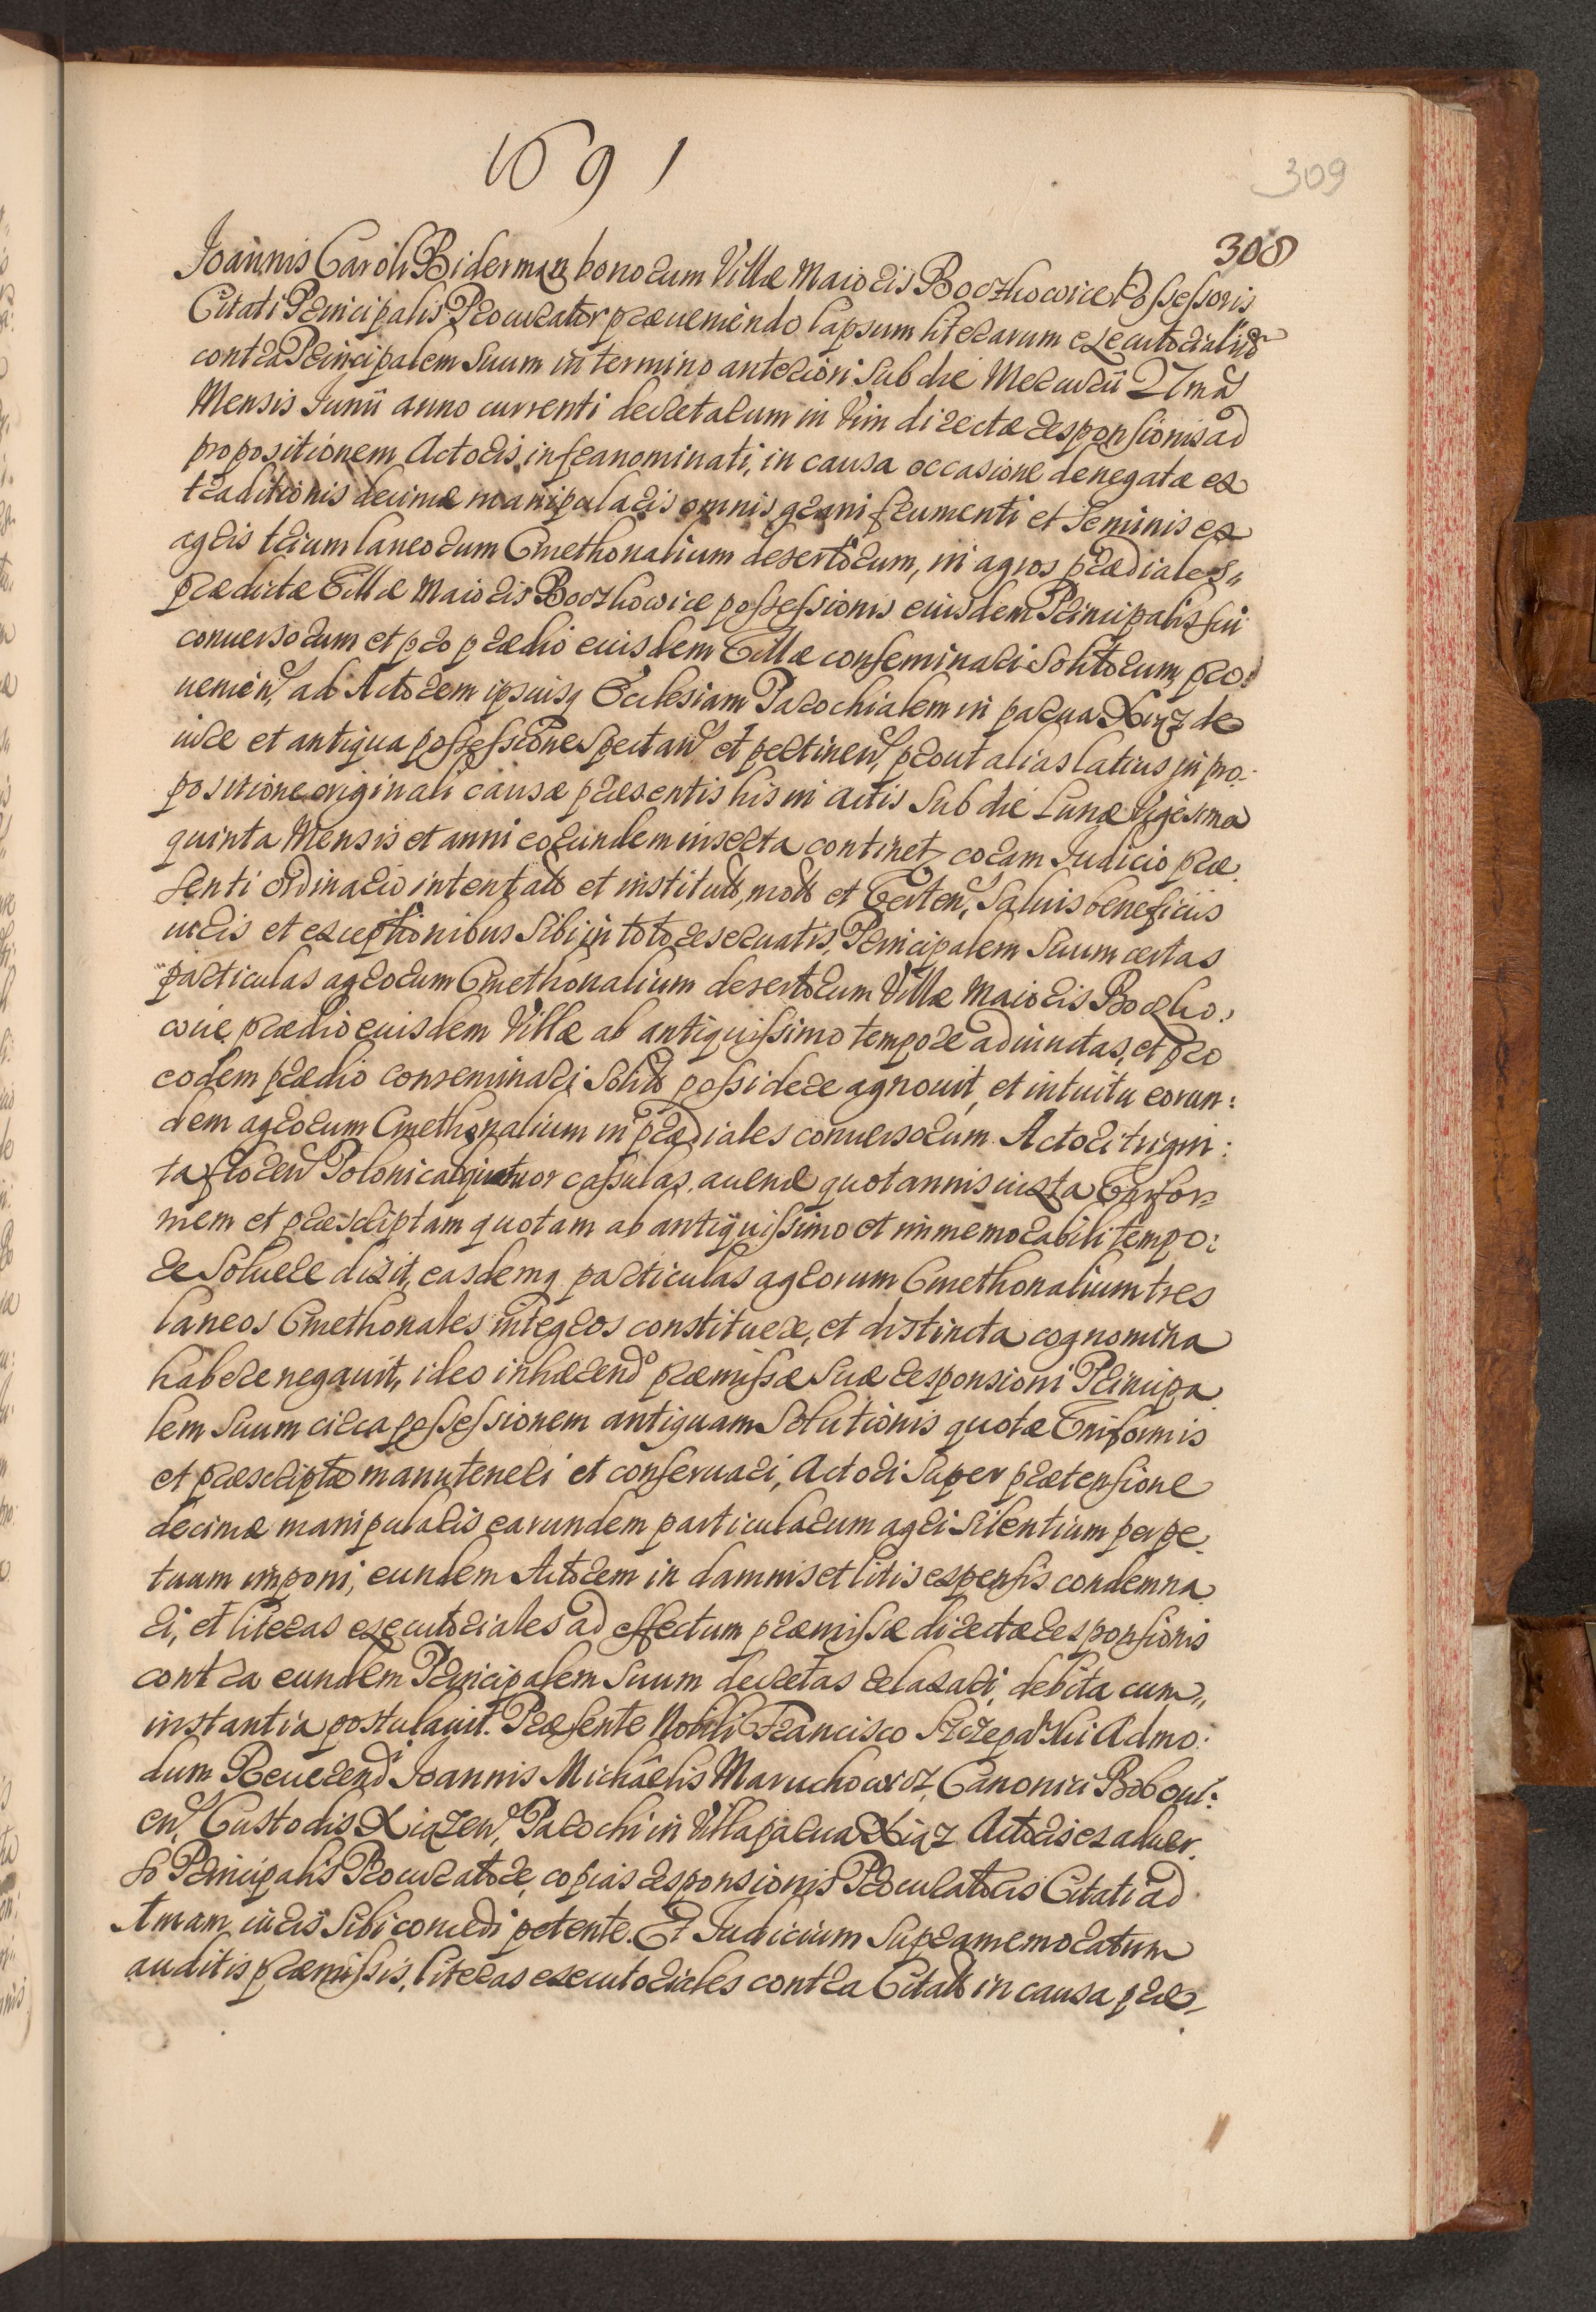 1691
309
308
Joannis Caroli Biderman bonorum Villæ Maioris Boczkowice Possessoris
Citati Principalis Procurator præueniendo lapsum literarum executorialiũ
contra Principalem Suum in termino anteriori Sub die Mercurii 27mâ
Mensis Junii anno currenti decretarum in Vim directæ responsionis ad
propositionem Actoris infranominati, in causa occasione denegatæ ex
traditionis decimæ manipularis omnis grani frumenti et Seminis ex
agris trium laneorum Cmethonalium desertorum, in agros prædiales,,
prædictæ Villæ Maioris Boczkowice possessionis eiusdem Principalis sui
conuersorum et pro prædio euisdem Villæ conseminari Solitorum, pro:
uenien, ad Actorem ipsiusq Ecclesiam Parochialem in parua Xiąz de
iure et antiqua possessione Spectan et pertinen, prout alias latius in pro:
positione originali causæ præsentis his in Actis Sub die Lunæ Vigesima
quinta Mensis et anni eorundem inserta continet, coram Judicio præ
senti ordinario intentatæ et institutæ, motæ et Verten, Saluis beneficiis
iuris et exceptionibus Sibi in toto reseruatis, Principalem Suum certas
particulas agrorum Cmethonalium desertorum Villæ Maioris Boczko:
wice, prædio euisdem Villæ ab antiquissimo tempore adiunctas, et pro
eodem prædio conseminari Solitas possidere agnouit, et intuitu eorun:
dem agrorum Cmethonalium in prædiales conuersorum Actori trigin:
ta floren Polonical quatuor cassulas auenæ quotannis iuxta Unifor=
mem et præscriptam quotam ab antiquissimo et immemorabili tempo:
re Soluere dixit, easdemq particulas agrorum Cmethonalium tres
laneos Cmethonales integros constituere, et distincta cognomina
habere negauit, ideo inhærendo præmissæ Suæ responsioni Principa
lem Suum circa possessionem antiquam Solutionis quotæ Uniformis
et præscriptæ manuteneri et conseruari, Actori Super prætensione
decimæ manipularis earundem particularum agri Silentium perpe
tuum imponi, eundem Actorem in damnis et litis expensis condemna
ri, et literas executoriales ad effectum præmissæ directæ responsionis
contra eundem Principalem Suum decretas relaxari, debita cum,,
instantia postulauit. Præsente Nobili Francisco Szczepański Admo:
dum Reuerendi Joannis Michaëlis Maruchowicz, Canonici Bobouï:
en, Custodis Xiązen, Parochi in Villa parua Xiąz Actoris ex aduer
so Principalis Procuratore, copias responsionis Procuratoris Citati ad
Amam iuris Sibi concedi petente. Et Judicium Supramemoratum
auditis præmissis, literas executoriales contra Citatū in causa præ